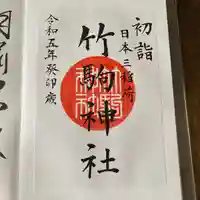 初詣
日本三稲荷
竹駒神社
令和五年癸卯歳